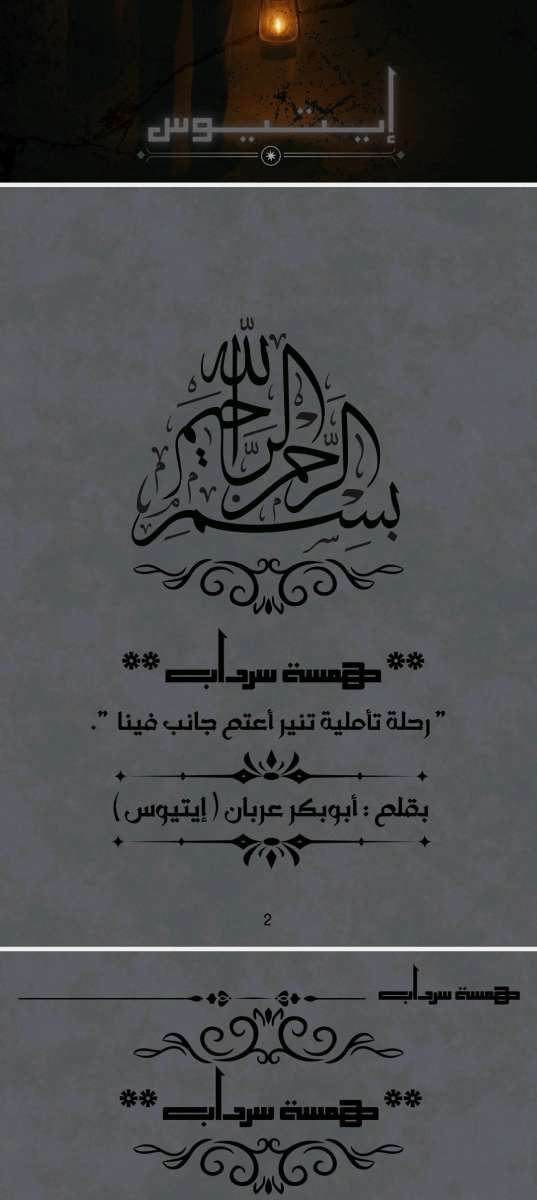 إيتيوس
بسم الله الرحمن الرحيم
** همسة سرداب **
" رحلة تأملية تنير أعتم جانب فينا ".
بقلم : أبوبكر عربان ( إيتيوس )
2
همسة سرداب
** همسة سرداب **